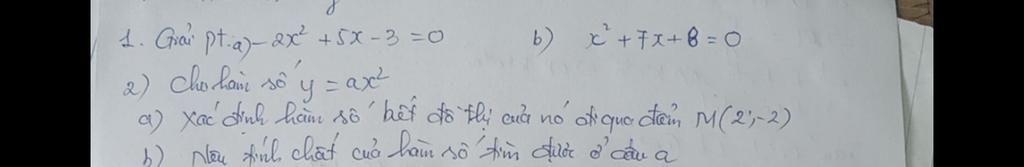 1. Giải pt. a) -2x² + 5x - 3 = 0 b) x² + 7x + 8 = 0
2) Cho hàm số y = ax²
a) Xác định hàm số biết đồ thị của nó đi qua điểm M(2;-2)
b) Nêu tính chất của hàm số tìm được ở câu a